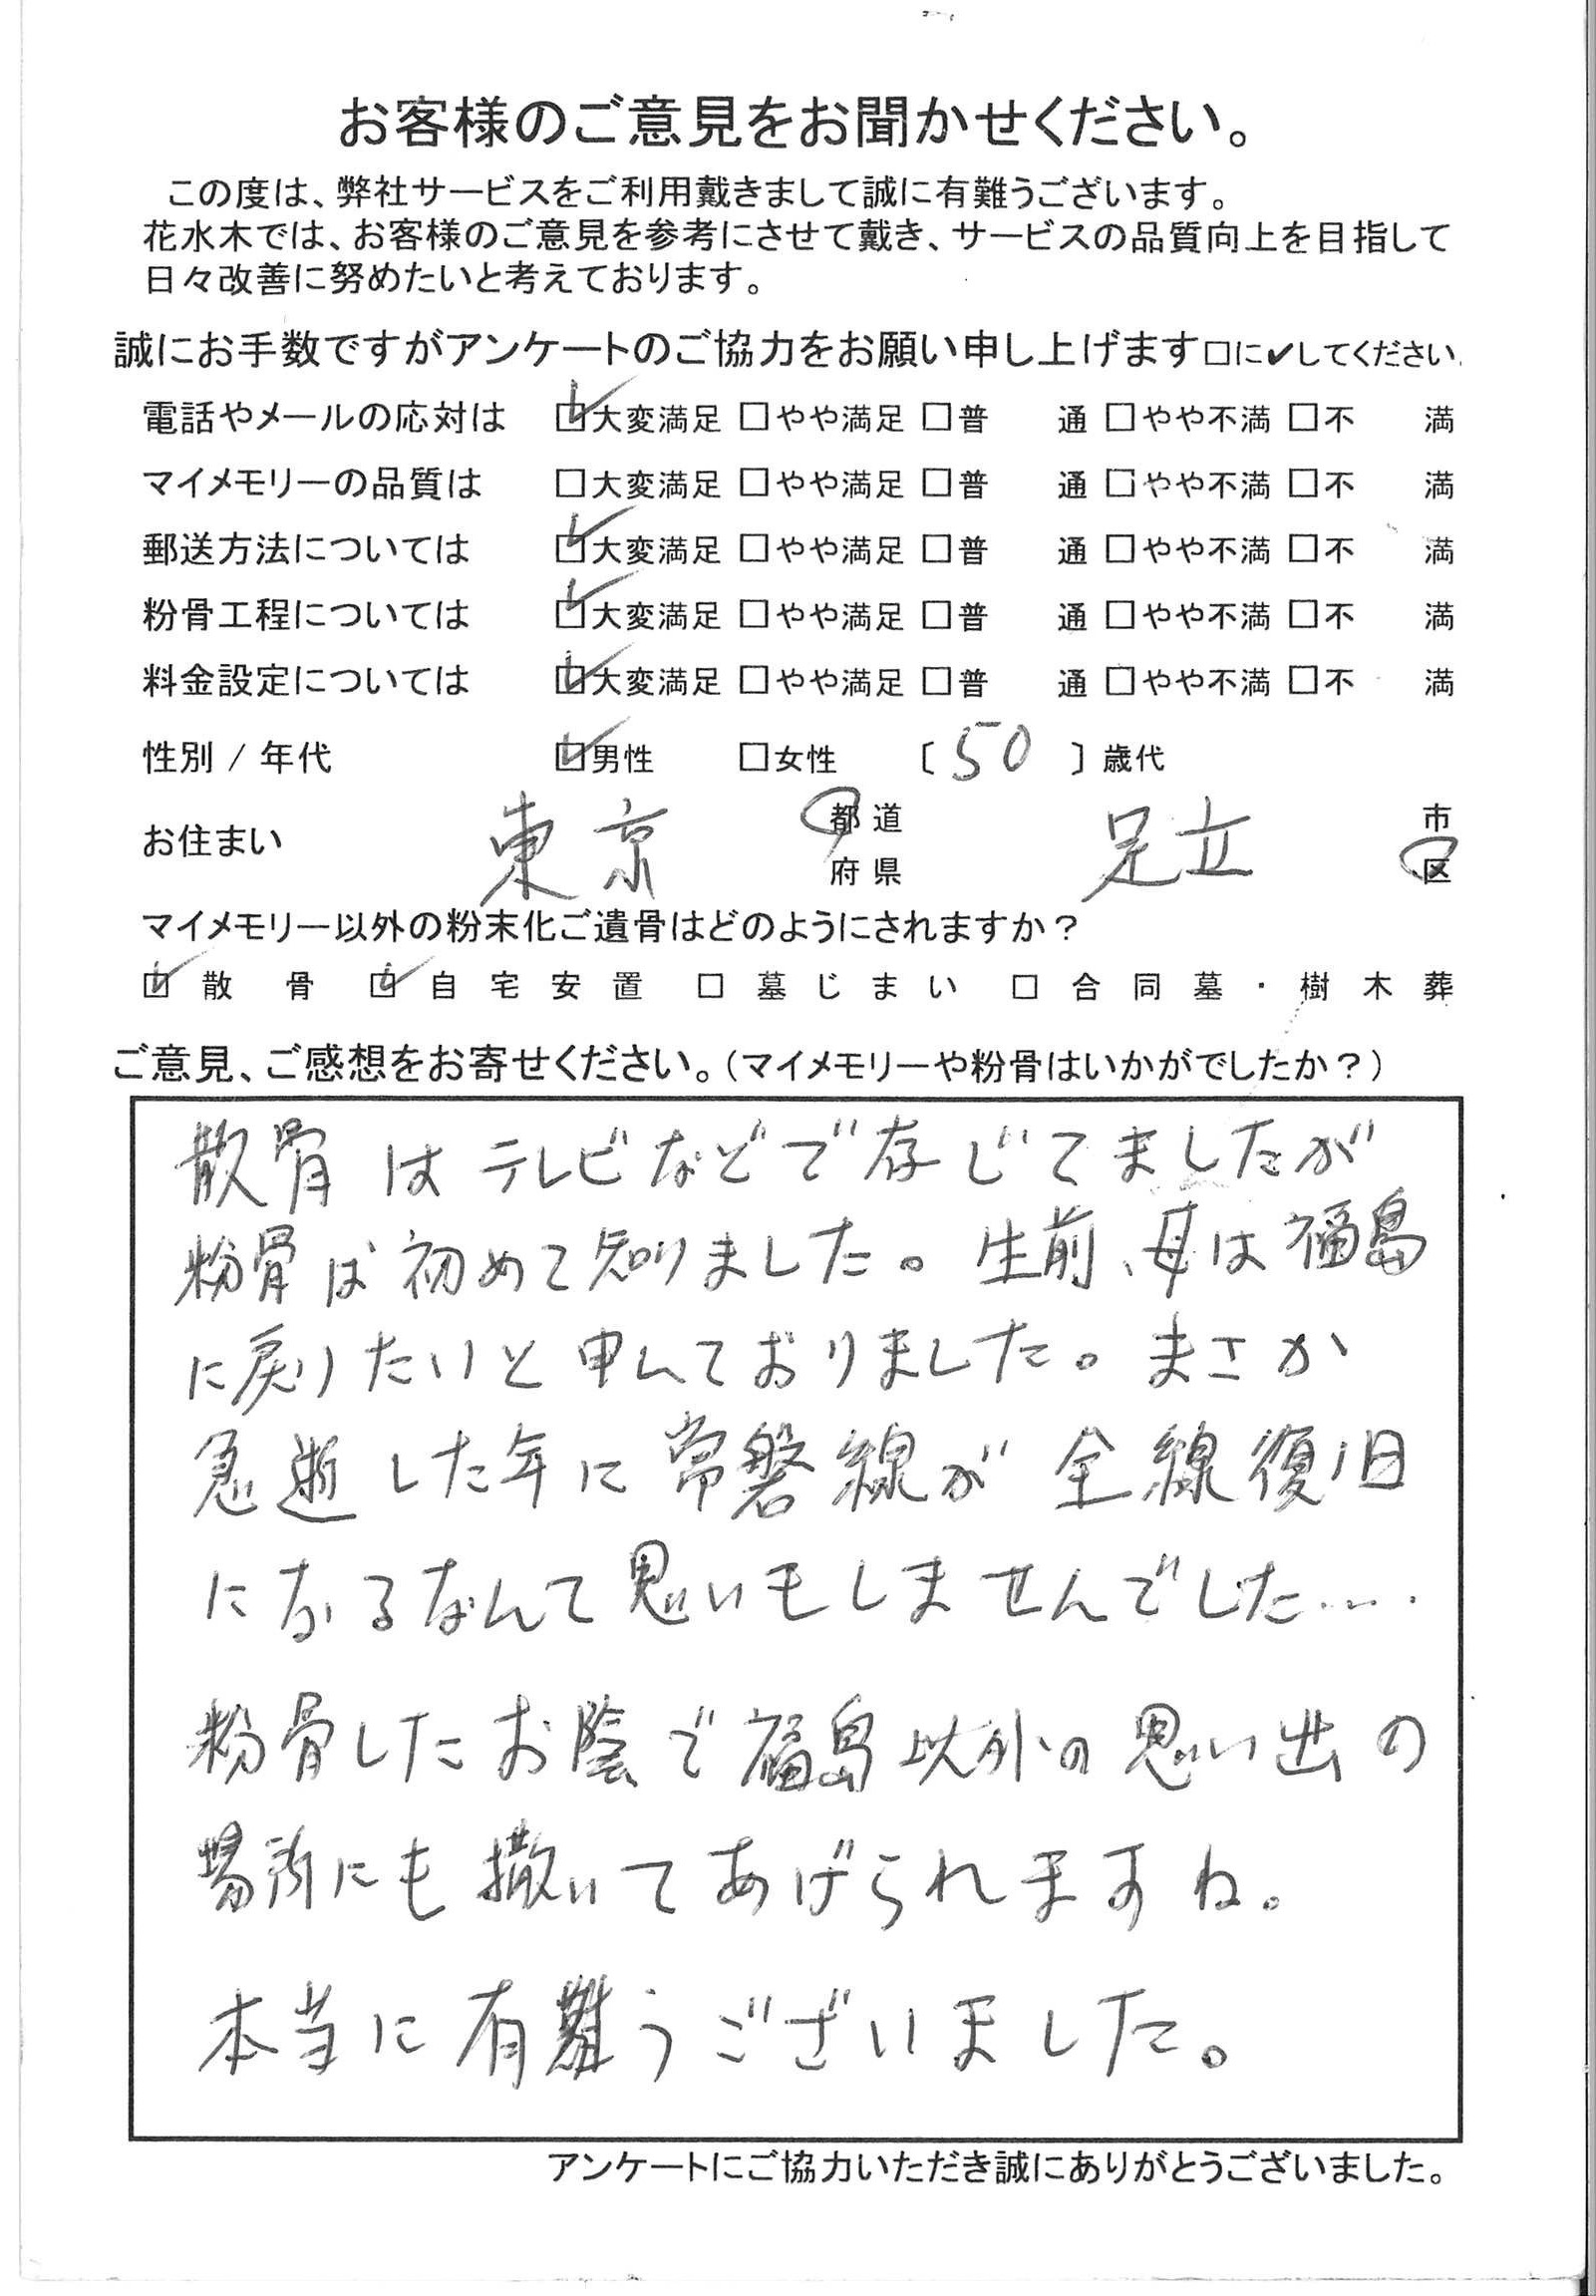 お客様のご意見をお聞かせください。
この度は、弊社サービスをご利用戴きまして誠に有難うございます。
花水木では、お客様のご意見を参考にさせて戴き、サービスの品質向上を目指して
日々改善に努めたいと考えております。
誠にお手数ですがアンケートのご協力をお願い申し上げます□に✔してください。
電話やメールの応対は ☑大変満足 □やや満足 □普 通 □やや不満 □不 満
マイメモリーの品質は □大変満足 □やや満足 □普 通 □やや不満 □不 満
郵送方法については ☑大変満足 □やや満足 □普 通 □やや不満 □不 満
粉骨工程については ☑大変満足 □やや満足 □普 通 □やや不満 □不 満
料金設定については ☑大変満足 □やや満足 □普 通 □やや不満 □不 満
性別 / 年代 ☑男性 □女性 〔 50 〕歳代
お住まい 東京 都道府県 足立 市区
マイメモリー以外の粉末化ご遺骨はどのようにされますか？
☑散骨 ☑自宅安置 □墓じまい □合同墓・樹木葬
ご意見、ご感想をお寄せください。（マイメモリーや粉骨はいかがでしたか？）
散骨はテレビなどで存じてましたが
粉骨は初めて知りました。生前、母は福島
に戻りたいと申しておりました。まさか
急逝した年に常磐線が全線復旧
になるなんて思いもしませんでした....
粉骨したお陰で福島以外の思い出の
場所にも撒いてあげられますね。
本当に有難うございました。
アンケートにご協力いただき誠にありがとうございました。